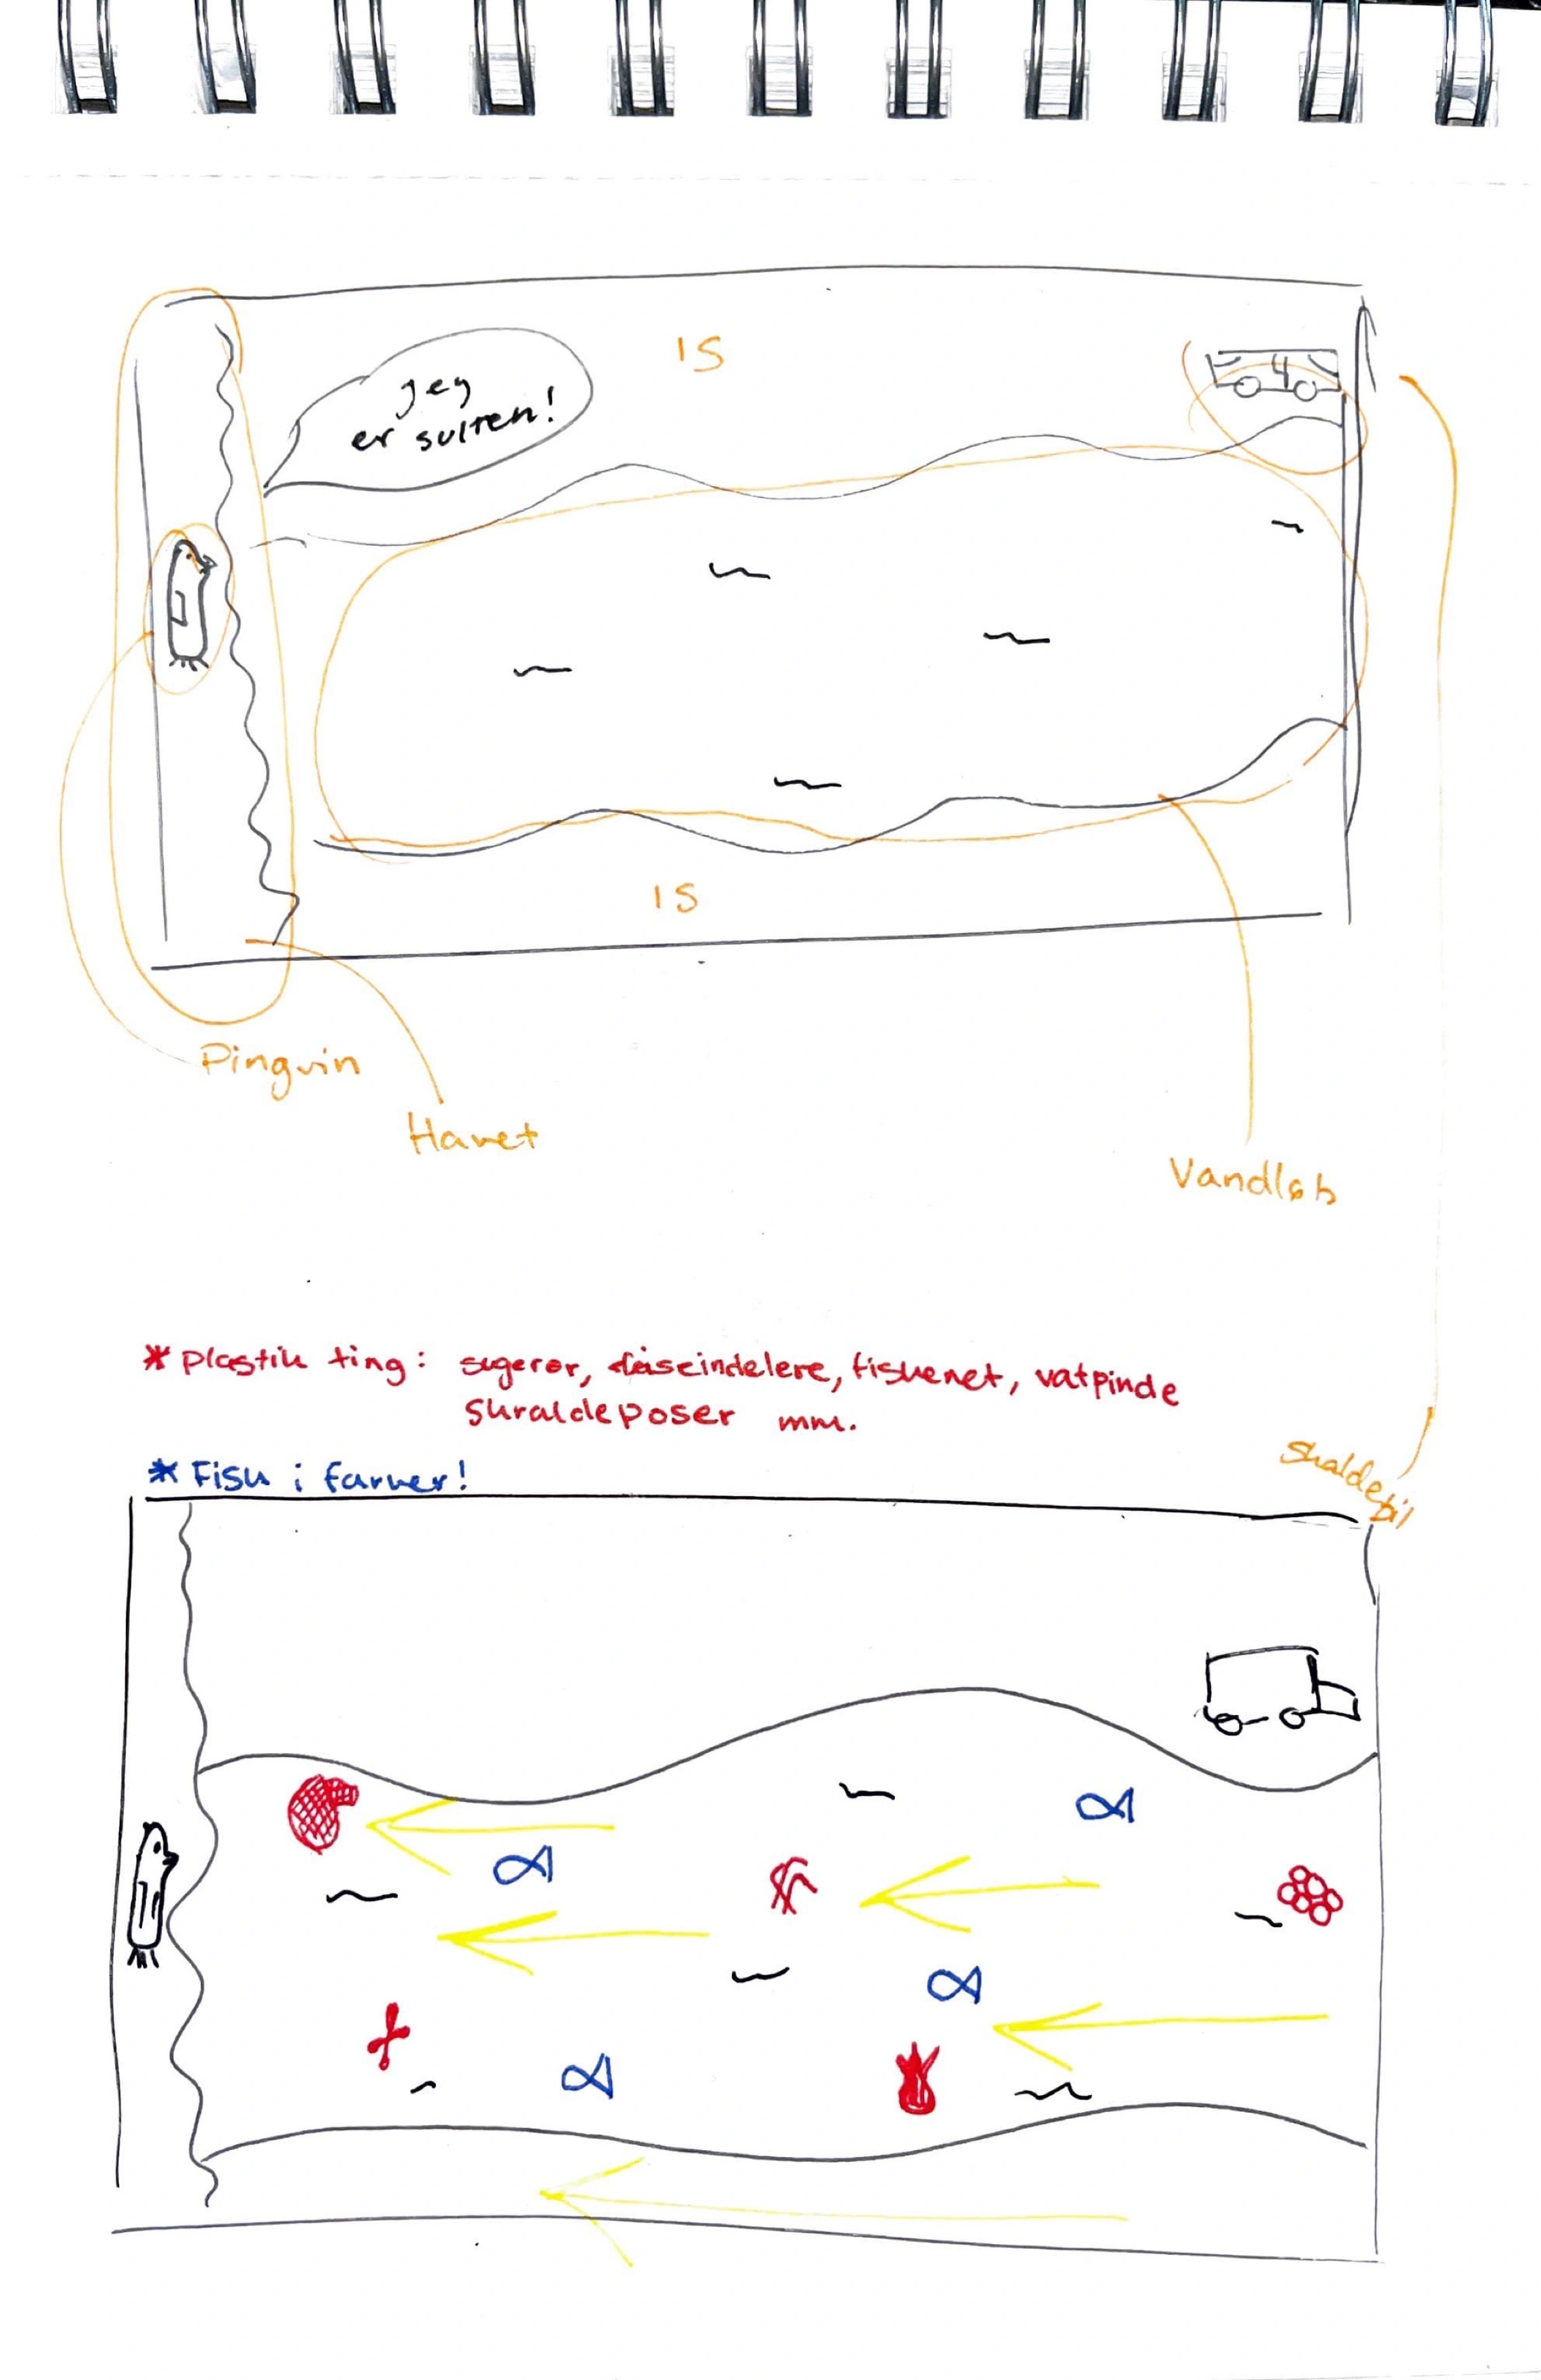 IS
Jeg
er sulten!
IS
Pingvin
Havet
Vandløb
* Plastik ting: sugerør, dåseindelere, fiskenet, vatpinde
Skraldeposer mm.
* Fisk i farver!
Skaldebil